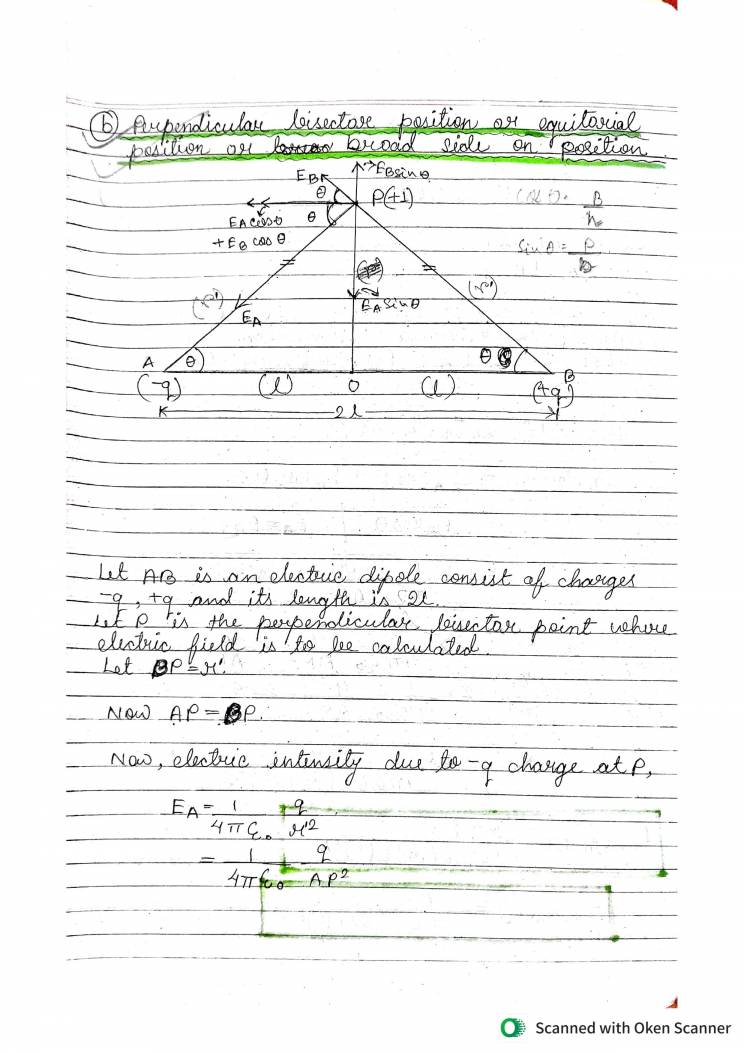 (b) Perpendicular bisectar position or equitarial
position or broad side on position
E_B
→E_B sin θ
θ
P(+1)
θ
E_A cos θ
+ E_B cos θ
B
h
sin θ = P
(r')
(r')
E_A
E_A sin θ
A
θ
θ
B
(-q)
(l)
O
(l)
(+q)
2l
Let AB is an electric dipole consist of charges
-q, +q and its length is 2l.
Let P is the perpendicular bisectar point where
electric field is to be calculated.
Let BP = r'.
Now AP = BP.
Now, electric intensity due to -q charge at P,
E_A = 1/4πε₀ q/r'²
= 1/4πε₀ q/AP²
Scanned with Oken Scanner